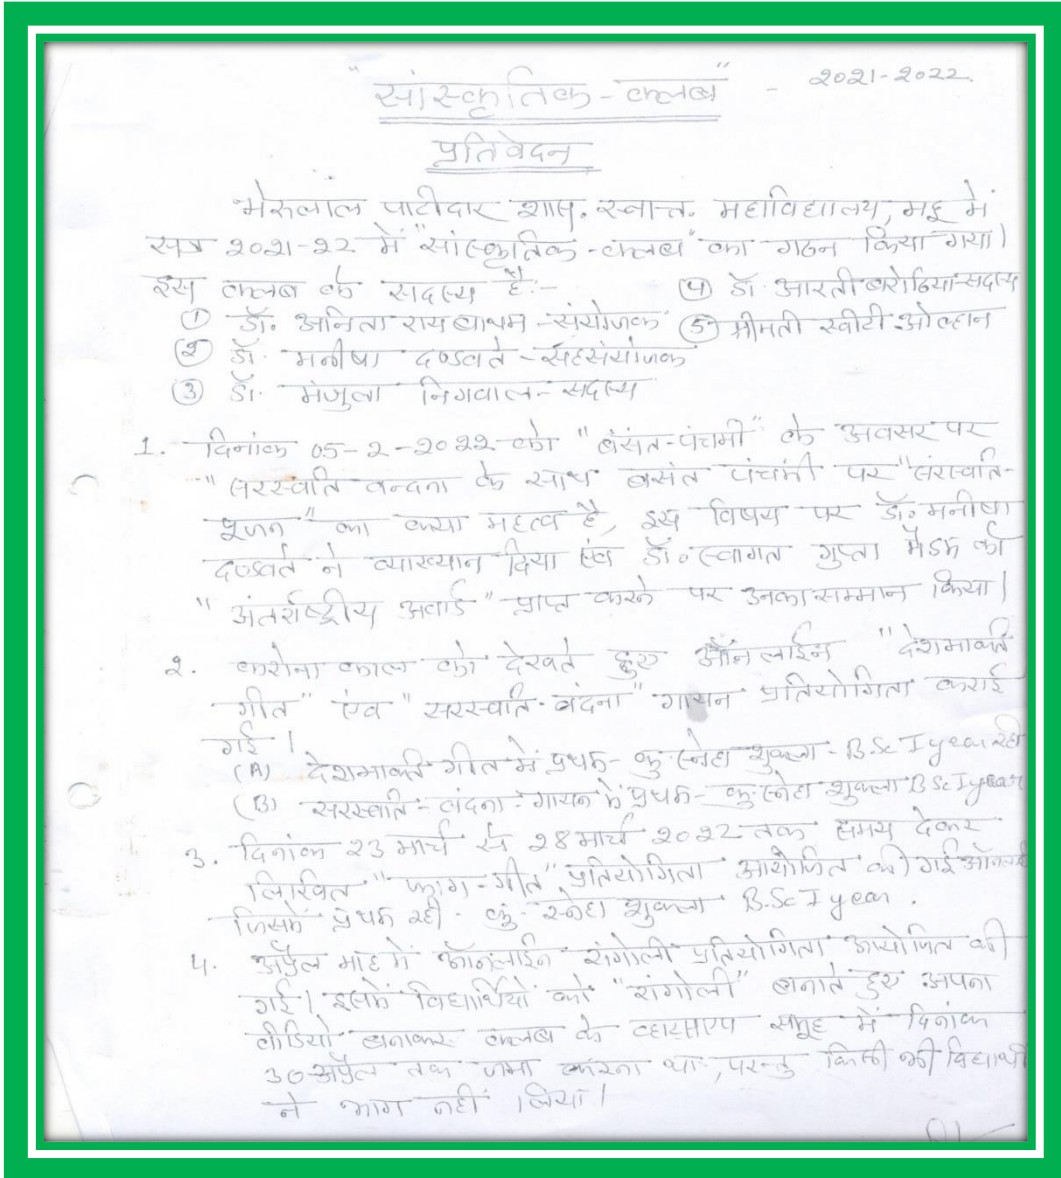 "सांस्कृतिक - क्लब" - 2021-2022.
प्रतिवेदन
भेरूलाल पाटीदार शास. स्वात्त. महाविद्यालय, महू में
सत्र 2021-22 में "सांस्कृतिक - क्लब" का गठन किया गया।
इस क्लब के सदस्य है:- (4) डॉ. आरती बरोठिया-सदस्य
(1) डॉ. अनिता राय बाथम - संयोजक (5) श्रीमती स्वीटी ओल्हान
(2) डॉ. मनीषा दण्डवते - सहसंयोजक
(3) डॉ. मंजुला निगवाल - सदस्य
1. दिनांक 05-2-2022 को "बंसत-पंचमी" के अवसर पर
"सरस्वति वन्दना के साथ बसंत पंचमी पर "सरस्वति-
पूजन" का क्या महत्व है, इस विषय पर डॉ. मनीषा
दण्डवते ने व्याख्यान दिया एंव डॉ. स्वागत गुप्ता मैडम को
"अंतर्राष्ट्रीय अवार्ड" प्राप्त करने पर उनका सम्मान किया।
2. करोना काल को देखते हुए ऑनलाईन "देशभक्ति
गीत" एंव "सरस्वति-वंदना" गायन प्रतियोगिता कराई
गई।
(A) देशभक्ति गीत में प्रथम- कु. स्नेहा शुक्ला - B.Sc I year रही
(B) सरस्वति - वंदना - गायन में प्रथम - कु. स्नेहा शुक्ला B.Sc I year
3. दिनांक 23 मार्च से 28 मार्च 2022 तक समय देकर
लिखित "फाग-गीत" प्रतियोगिता आयोजित की गई
जिसमें प्रथम रही. कु. स्नेहा शुक्ला B.Sc I year.
4. अप्रैल माह में ऑनलाईन रांगोली प्रतियोगिता आयोजित की
गई। इसमें विद्यार्थियों को "रांगोली" बनाते हुए अपना
वीडियो बनाकर क्लब के व्हाट्सएप समूह में दिनांक
30 अप्रैल तक जमा करना था, परन्तु किसी भी विद्यार्थी
ने भाग नहीं लिया।